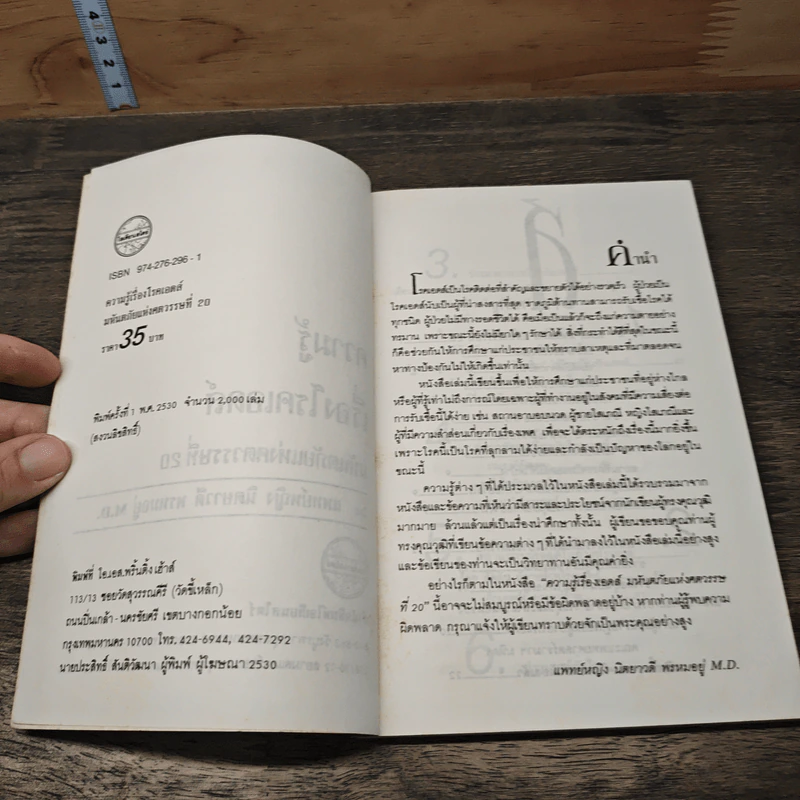 4 3 2 1
ISBN 974-276-296-1
ความรู้เรื่องโรคเอดส์
มหันตภัยแห่งศตวรรษที่ 20
ราคา 35 บาท
พิมพ์ครั้งที่ 1 พ.ศ. 2530 จำนวน 2,000 เล่ม
(สงวนลิขสิทธิ์)
พิมพ์ที่ โอ.เอส.พริ้นติ้ง เฮ้าส์
113/13 ซอยวัดสุวรรณคีรี (วัดขี้เหล็ก)
ถนนปิ่นเกล้า-นครชัยศรี เขตบางกอกน้อย
กรุงเทพมหานคร 10700 โทร. 424-6944, 424-7292
นายประสิทธิ์ สันติวัฒนา ผู้พิมพ์ ผู้โฆษณา 2530
คำนำ
โรคเอดส์เป็นโรคติดต่อที่สำคัญและขยายตัวได้อย่างรวดเร็ว ผู้ป่วยเป็น
โรคเอดส์นับเป็นผู้ที่น่าสงสารที่สุด ขาดภูมิต้านทานสามารถรับเชื้อโรคได้
ทุกชนิด ผู้ป่วยไม่มีทางรอดชีวิตได้ คือเมื่อเป็นแล้วก็จะถึงแก่ความตายอย่าง
ทรมาน เพราะขณะนี้ยังไม่มียาใด ๆ รักษาได้ สิ่งที่กระทำได้ดีที่สุดในขณะนี้
ก็คือช่วยกันให้การศึกษาแก่ประชาชนให้ทราบสาเหตุและที่มาตลอดจน
หาทางป้องกันไม่ให้เกิดขึ้นเท่านั้น
หนังสือเล่มนี้เขียนขึ้นเพื่อให้การศึกษาแก่ประชาชนที่อยู่ห่างไกล
หรือผู้ที่รู้เท่าไม่ถึงการณ์โดยเฉพาะผู้ที่ทำงานอยู่ในสังคมที่มีความเสี่ยงต่อ
การรับเชื้อนี้ได้ง่าย เช่น สถานอาบอบนวด ผู้ชายโสเภณี หญิงโสเภณีและ
ผู้ที่มีความสำส่อนเกี่ยวกับเรื่องเพศ เพื่อจะได้ตระหนักถึงเรื่องนี้มากยิ่งขึ้น
เพราะโรคนี้เป็นโรคที่ลุกลามได้ง่ายและกำลังเป็นปัญหาของโลกอยู่ใน
ขณะนี้
ความรู้ต่าง ๆ ที่ได้ประมวลไว้ในหนังสือเล่มนี้ได้รวบรวมมาจาก
หนังสือและข้อความที่เห็นว่ามีสาระและประโยชน์จากนักเขียนผู้ทรงคุณวุฒิ
มากมาย ล้วนแล้วแต่เป็นเรื่องน่าศึกษาทั้งนั้น ผู้เขียนขอขอบคุณท่านผู้
ทรงคุณวุฒิที่เขียนข้อความต่าง ๆ ที่ได้นำมาลงไว้ในหนังสือเล่มนี้อย่างสูง
และข้อเขียนของท่านจะเป็นวิทยาทานอันมีคุณค่ายิ่ง
อย่างไรก็ตามในหนังสือ "ความรู้เรื่องเอดส์ มหันตภัยแห่งศตวรรษ
ที่ 20" นี้อาจจะไม่สมบูรณ์หรือมีข้อผิดพลาดอยู่บ้าง หากท่านผู้รู้พบความ
ผิดพลาด กรุณาแจ้งให้ผู้เขียนทราบด้วยจักเป็นพระคุณอย่างสูง
แพทย์หญิง นิตยาวดี พรหมอยู่ M.D.